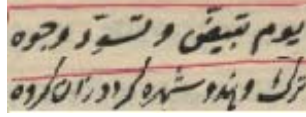 یوم تبیضّ و تسودّ وجوه
ترک و هندو شهره گردد زان گروه